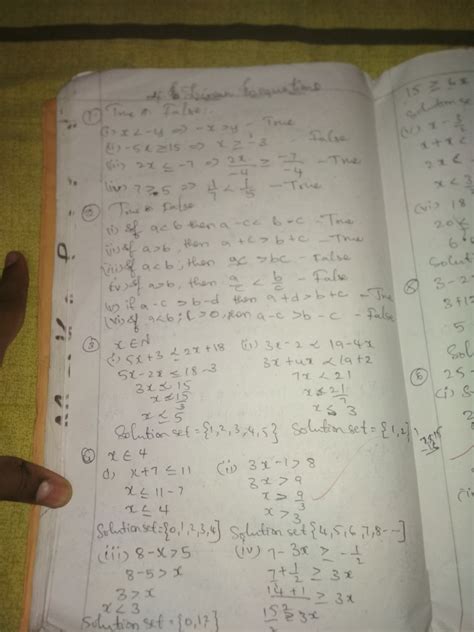 Linear Inequations
① True or False:
(i) x < -y ⇒ -x > y - True
(ii) -5x ≥ 15 ⇒ x ≥ -3 - False
(iii) 2x ≤ -7 ⇒ 2x/-4 ≥ -7/-4 - True
(iv) 7 > 5 ⇒ 1/7 < 1/5 - True
True or False
(i) If a < b then a - c < b - c - True
(ii) If a > b, then a + c > b + c - True
(iii) If a < b, then ac > bc - False
(iv) If a > b, then a/c < b/c - False
(v) if a - c > b - d then a + d > b + c - True
(vi) If a < b; c > 0, then a - c > b - c - False
x ∈ N
(i) 5x + 3 ≤ 2x + 18
5x - 2x ≤ 18 - 3
3x ≤ 15
x ≤ 15/3
x ≤ 5
Solution set = {1, 2, 3, 4, 5}
(ii) 3x - 2 < 19 - 4x
3x + 4x < 19 + 2
7x < 21
x ≤ 21/7
x ≤ 3
Solution set = {1, 2}
⑥ x ∈ 4
x + 7 ≤ 11
x ≤ 11 - 7
x ≤ 4
Solution set = {0, 1, 2, 3, 4}
(ii) 3x - 1 > 8
3x > 9
x > 9/3
x > 3
Solution set {4, 5, 6, 7, 8 ---}
(iii) 8 - x > 5
8 - 5 > x
3 > x
x < 3
Solution set = {0, 1?}
(iv) 7 - 3x ≥ -1/2
7 + 1/2 ≥ 3x
14 + 1 ≥ 3x
≥ 3x
15 ≥ 6x
Solution s
x + x <
2x <
x < 3
(vi) 18
20
Solut
3 - 2
3 +
5
25 -
(i)